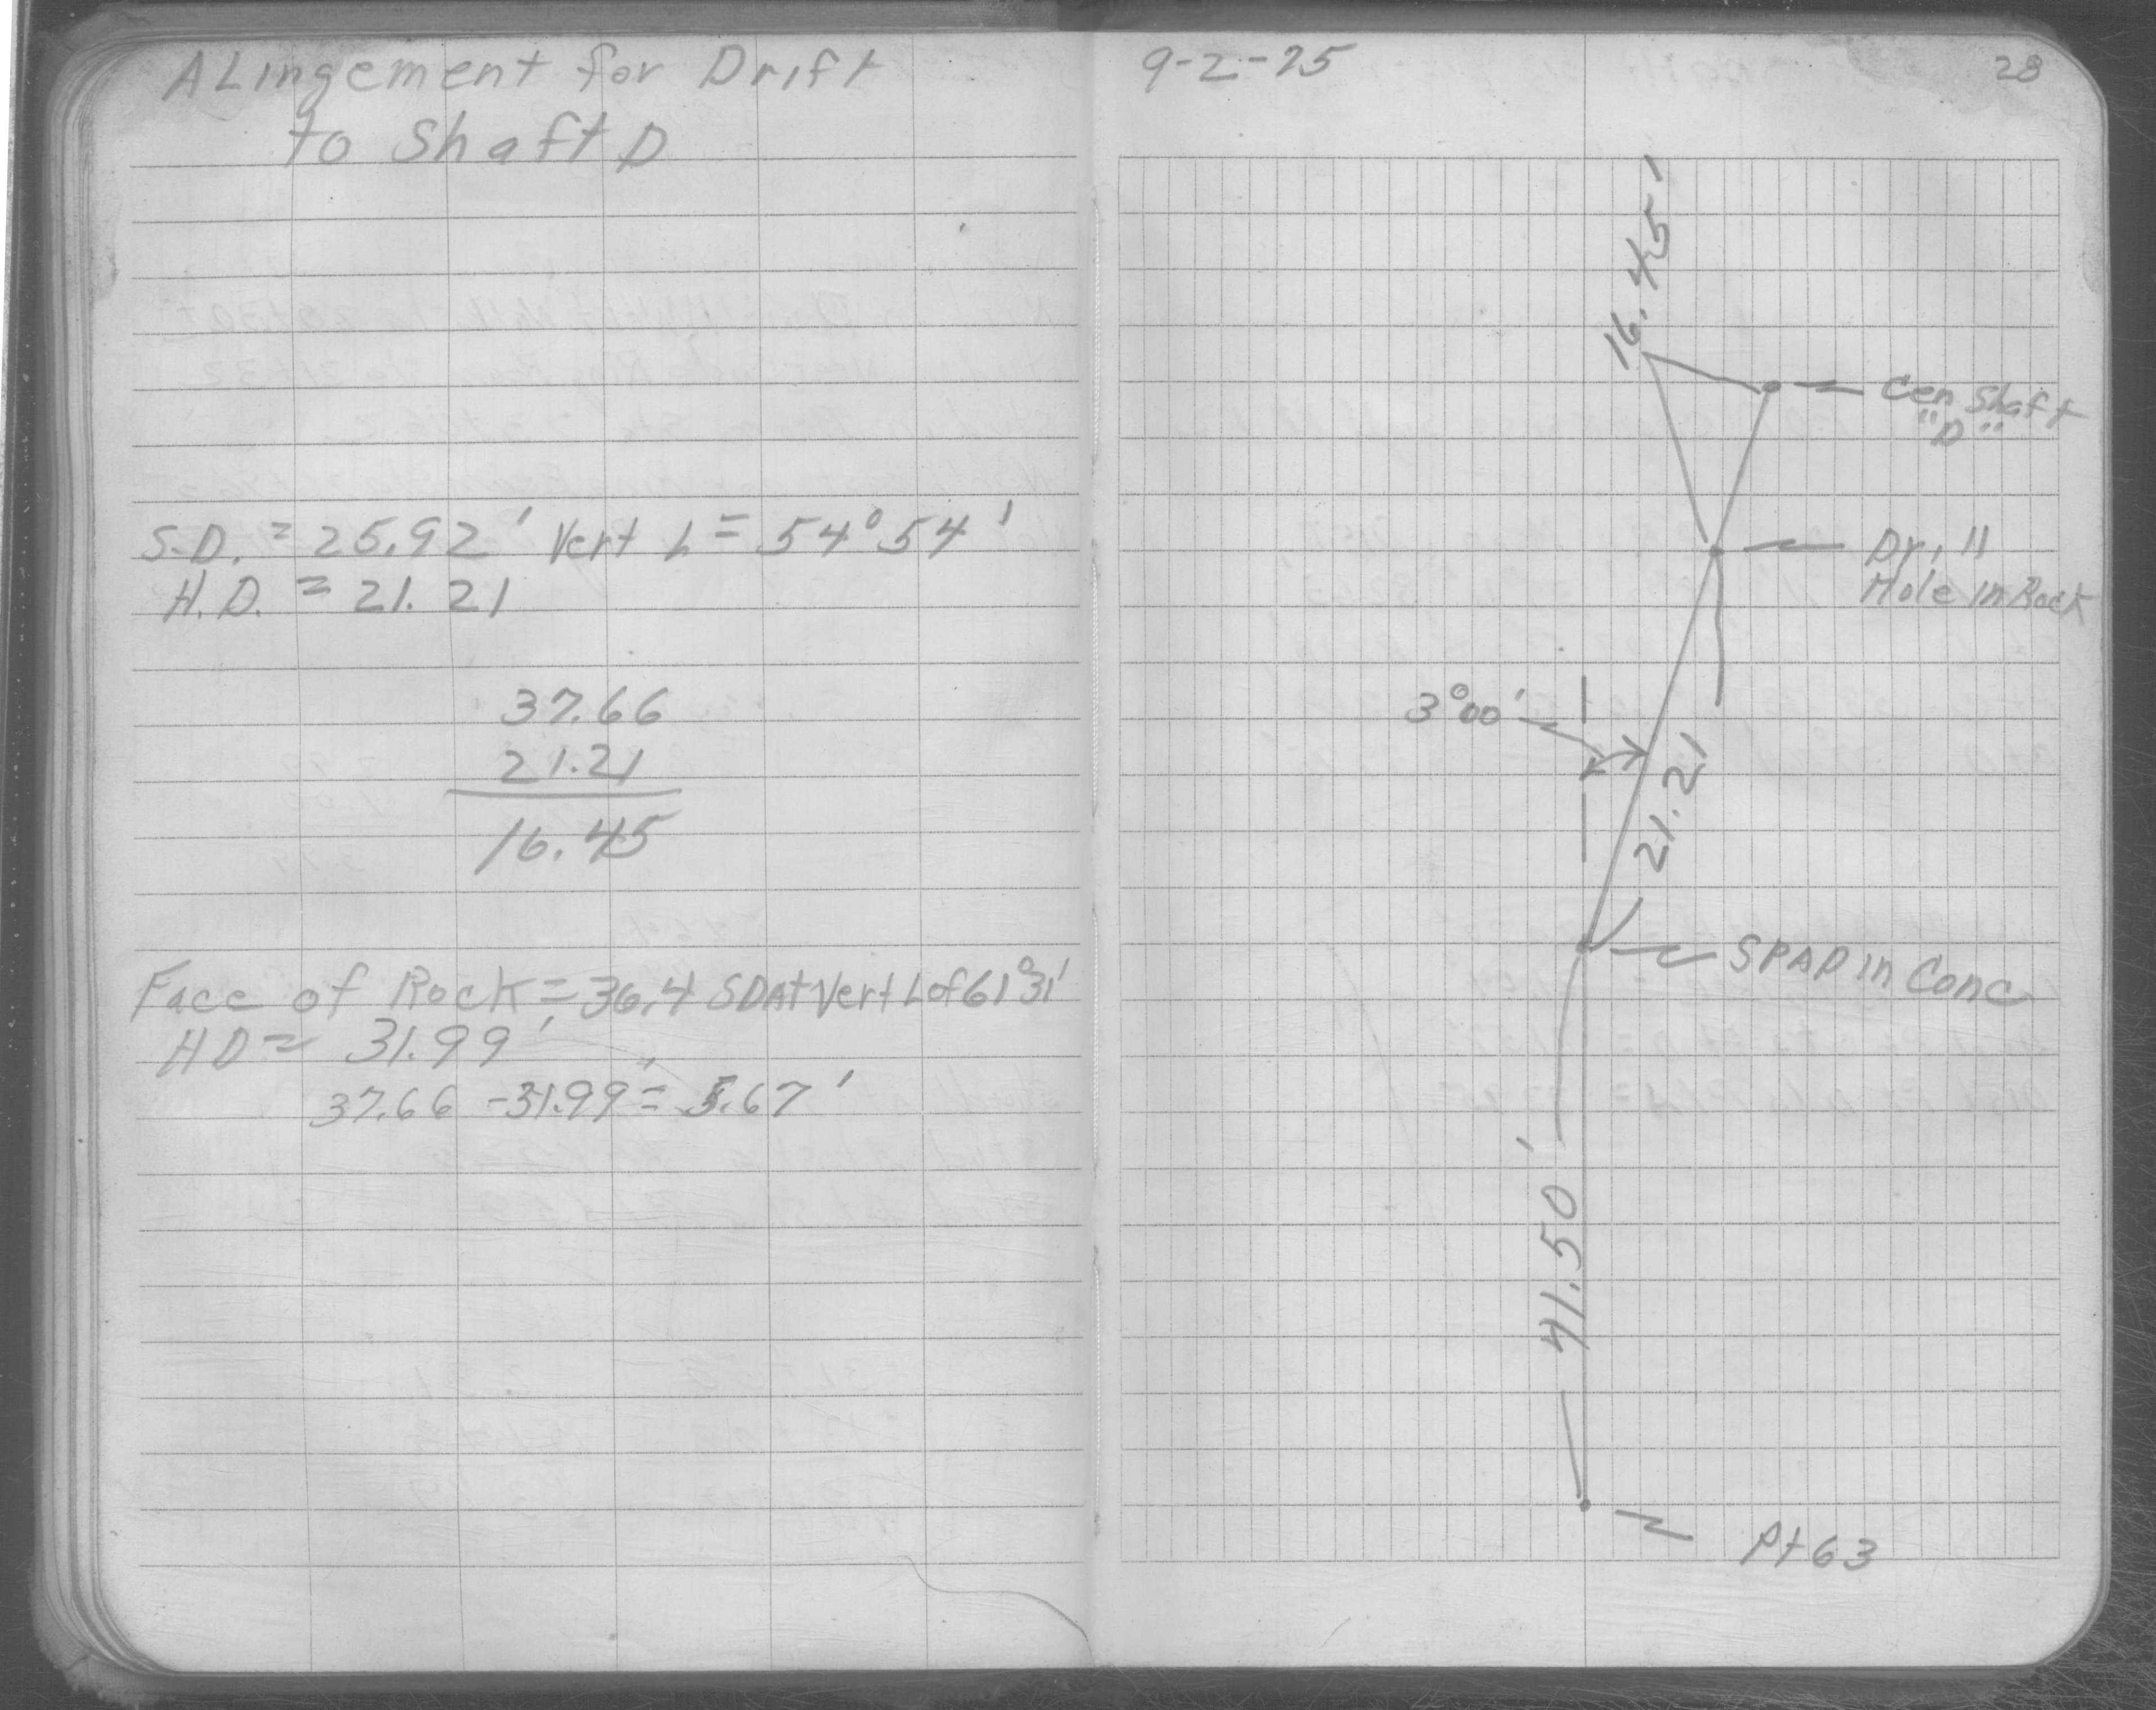 ALingement for Drift
to Shaft D
S.D. = 25.92' Vert L = 54°54'
H.D. = 21.21
37.66
21.21
16.45
Face of Rock = 36.4 SD At Vert L of 61°31'
HD = 31.99'
37.66 - 31.99 = 5.67'
9-2-75
28
16.45'
Cen Shaft
"D"
Dr, 11
Hole in Rock
3°00'
21.21
SPAD in Conc
41.50'
Pt 63